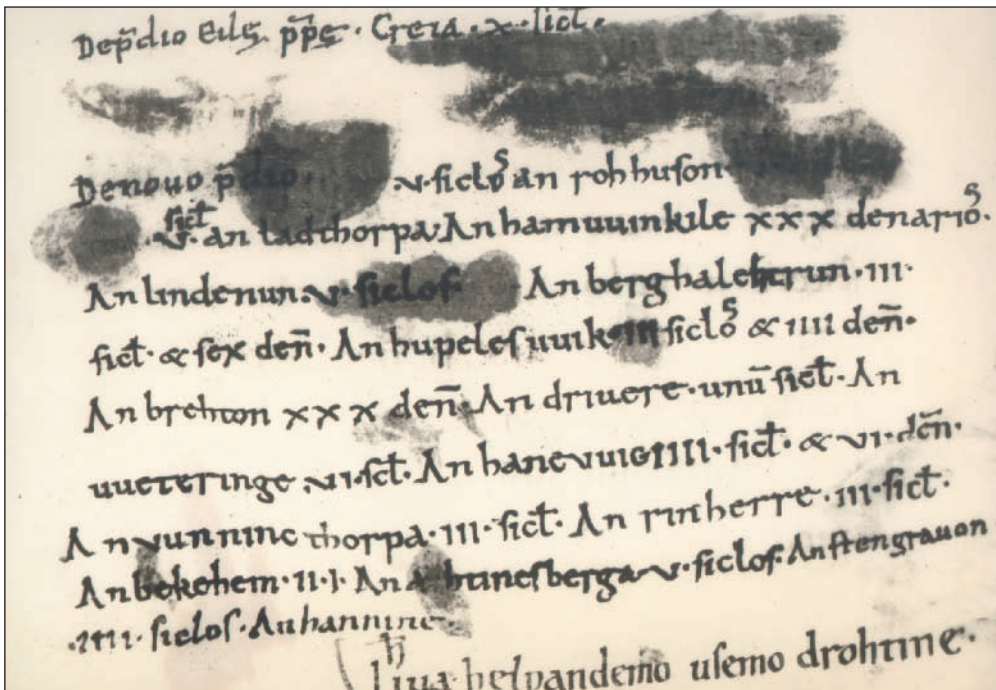 Dep̄dio Eilȩ. p̄pȩ. Creia. x. sict̄.
De nouo p̄dio. v. siclos an rohhuson.
sict̄
.v. an ladthorpa. An hamuuinkile xxx denarios.
An lindenun. v. siclos. An berghaleherun. III.
sict̄. & sex den̄. An hupelesuuik. III siclos & IIII den̄.
An brehton xxx den̄. An driuere. unū sict̄. An
uueteringe. vi. sct̄. An haneuuig IIII. sict̄. & vi. den̄.
An vunnincthorpa. III. sict̄. An rinherre. III. sict̄.
An bekehem. II. I. An hunesberga. v. siclos. An stengrauon
.IIII. siclos. An hannine.
helpandemo usemo drohtine.